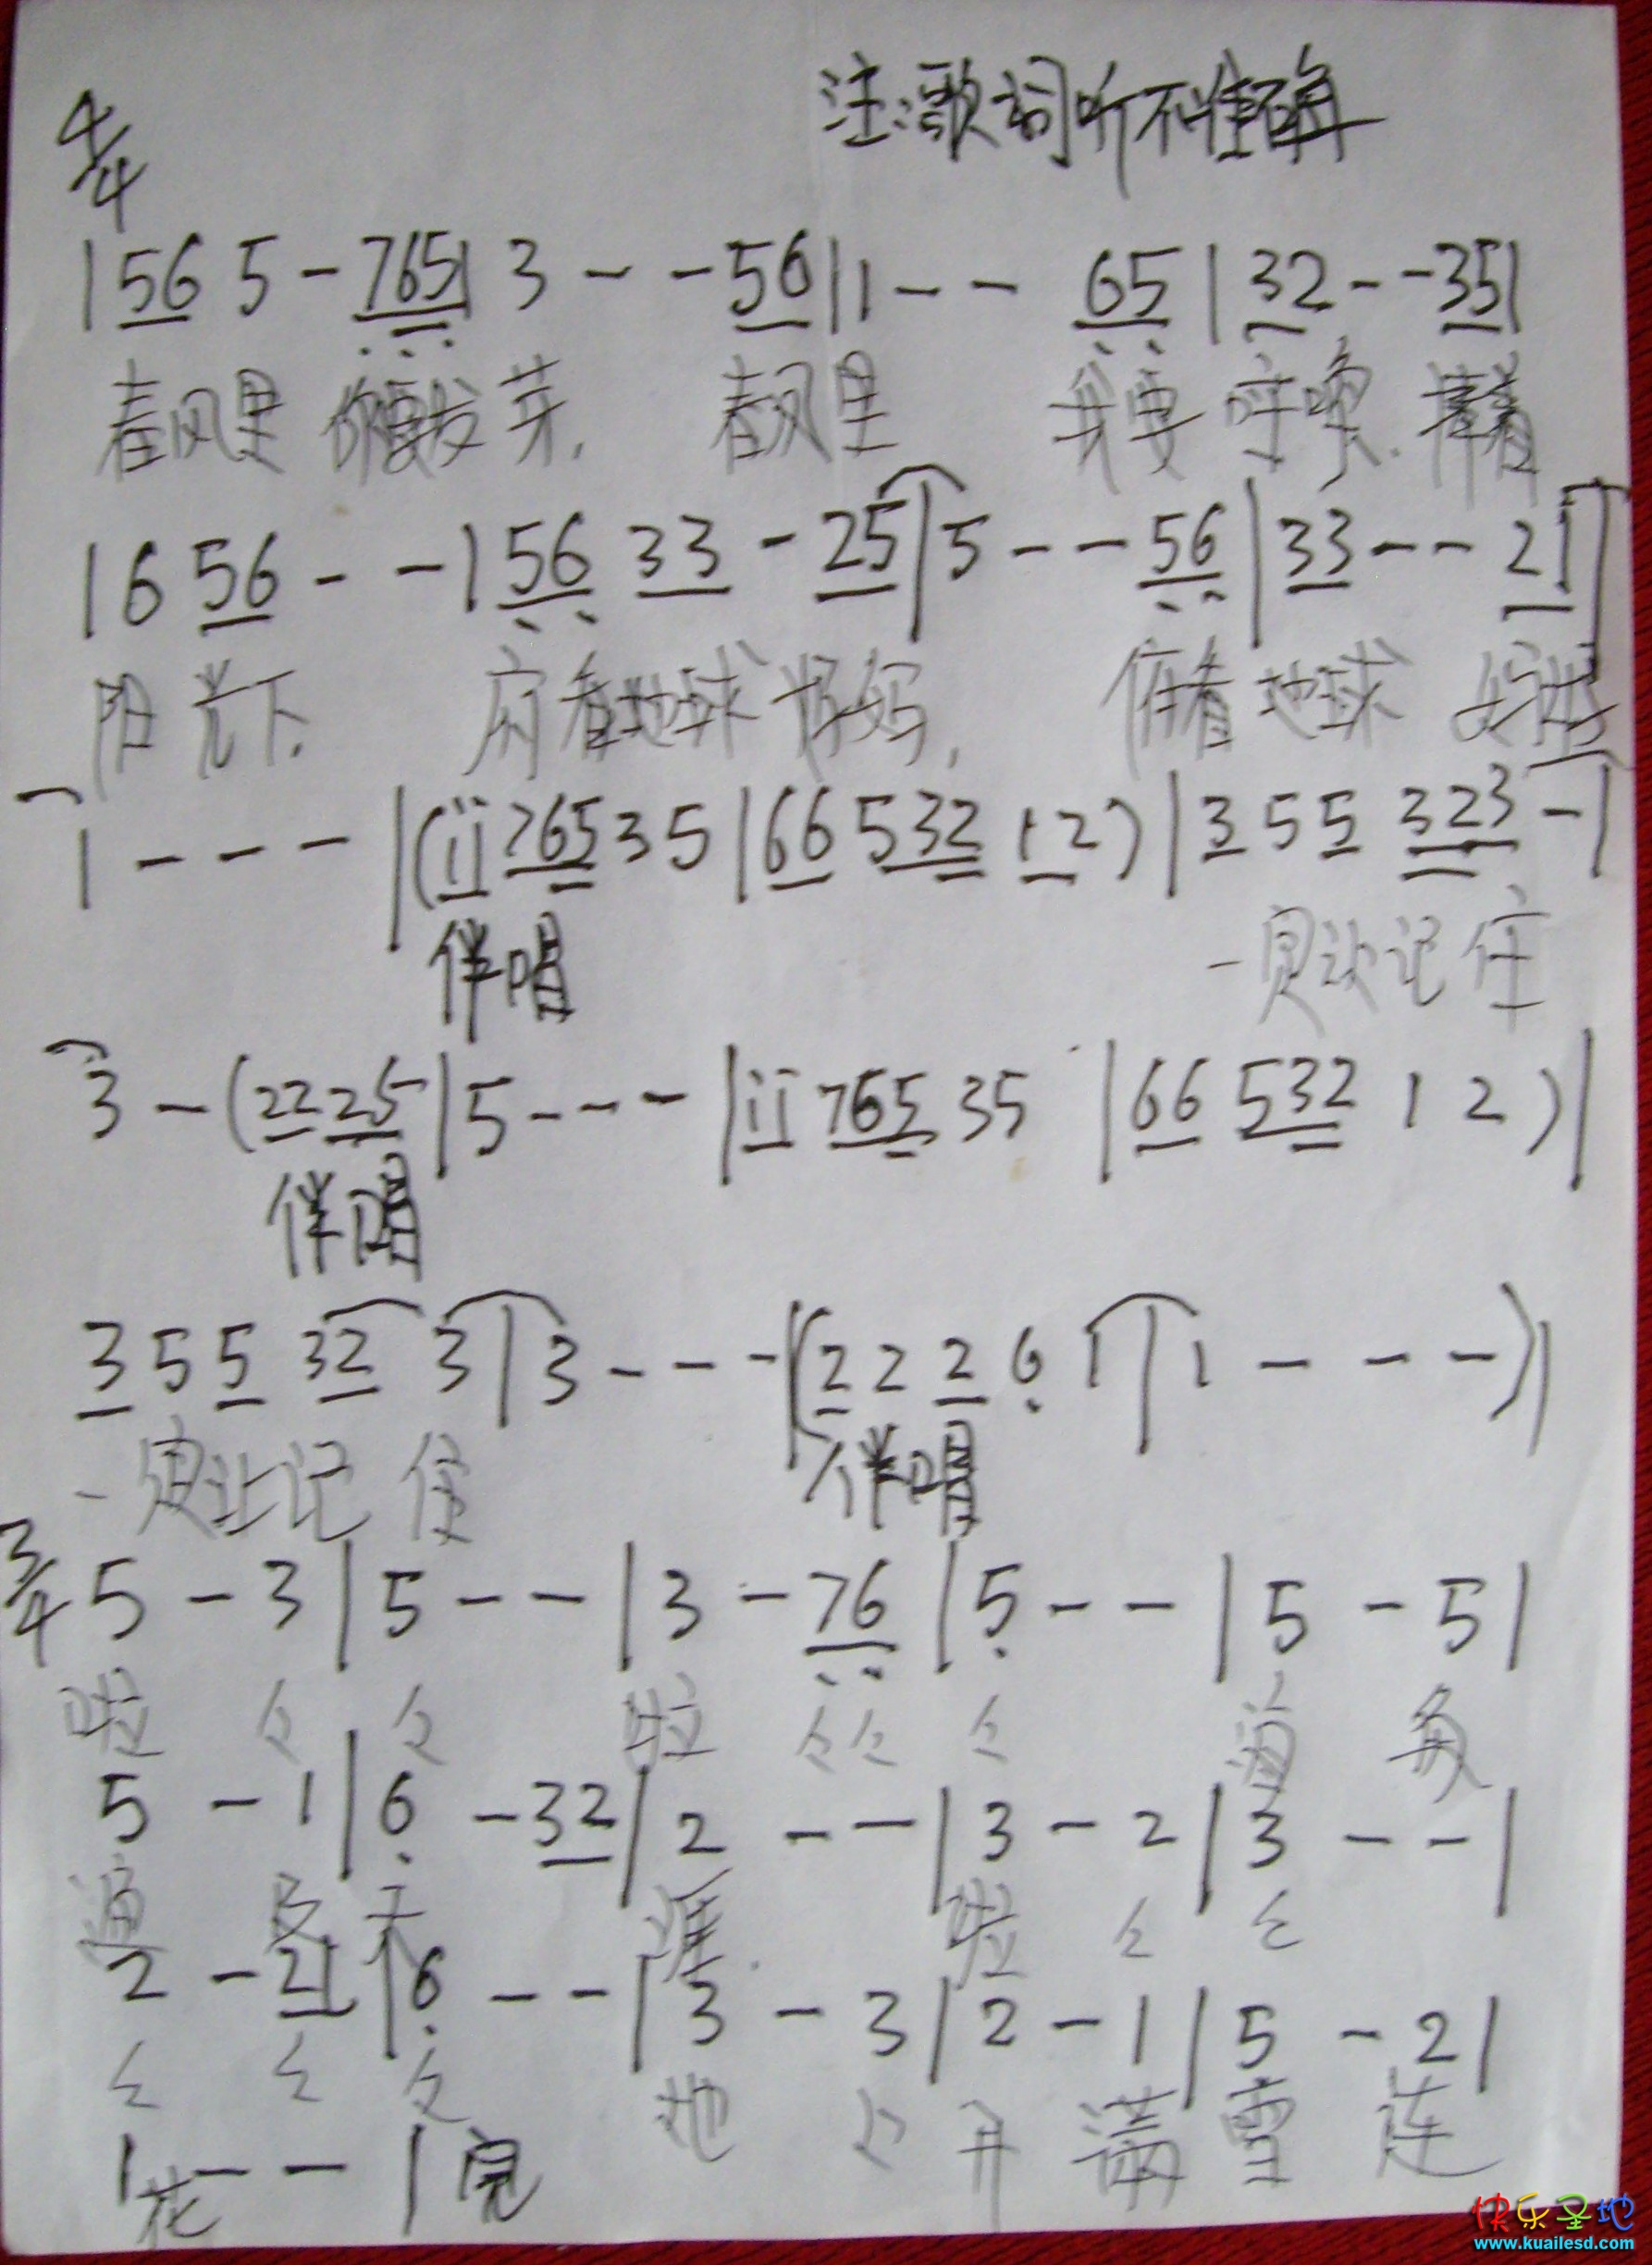 注:歌词听不准确
4/4
|56 5 - 765| 3 - - 56|1 - - 65|32 - - 35|
春风里 你要发芽, 春风里 我要呼唤,
|6 56 - - |56 33 - 25|5 - - 56|33 - - 21|
阳光下. 看地球妈妈, 看地球
1 - - - |(ii 765 35|66 532 12)|3 5 5 323 -|
伴唱
一定让记住
3 - (22 25|5 - - - |ii 765 35 |66 532 1 2)|
伴唱
3 5 5 32 3|3 - - - |(2 2 2 6 1|1 - - - )|
一定让记住
伴唱
3/4 5 - 3|5 - - |3 - 76|5 - - |5 - 5|
啦 々 々 啦 々々 々
5 - 1|6 - 32|2 - - |3 - 2|3 - - |
遍 天 涯. 啦 々 々
2 - 21|6 - - |3 - 3|2 - 1|5 - 2|
々 々 々 地 々 开 满 雪 莲
1 - - |完
花
快乐圣地
www.kuailesd.com